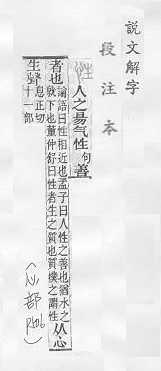 說文解字
段注本
性
人之昜气性句善
者也論語曰性相近也孟子曰人性之善也猶水之
就下也董仲舒曰性者生之質也質樸之謂性从心
生聲息正切
十一部
(心部 P506)